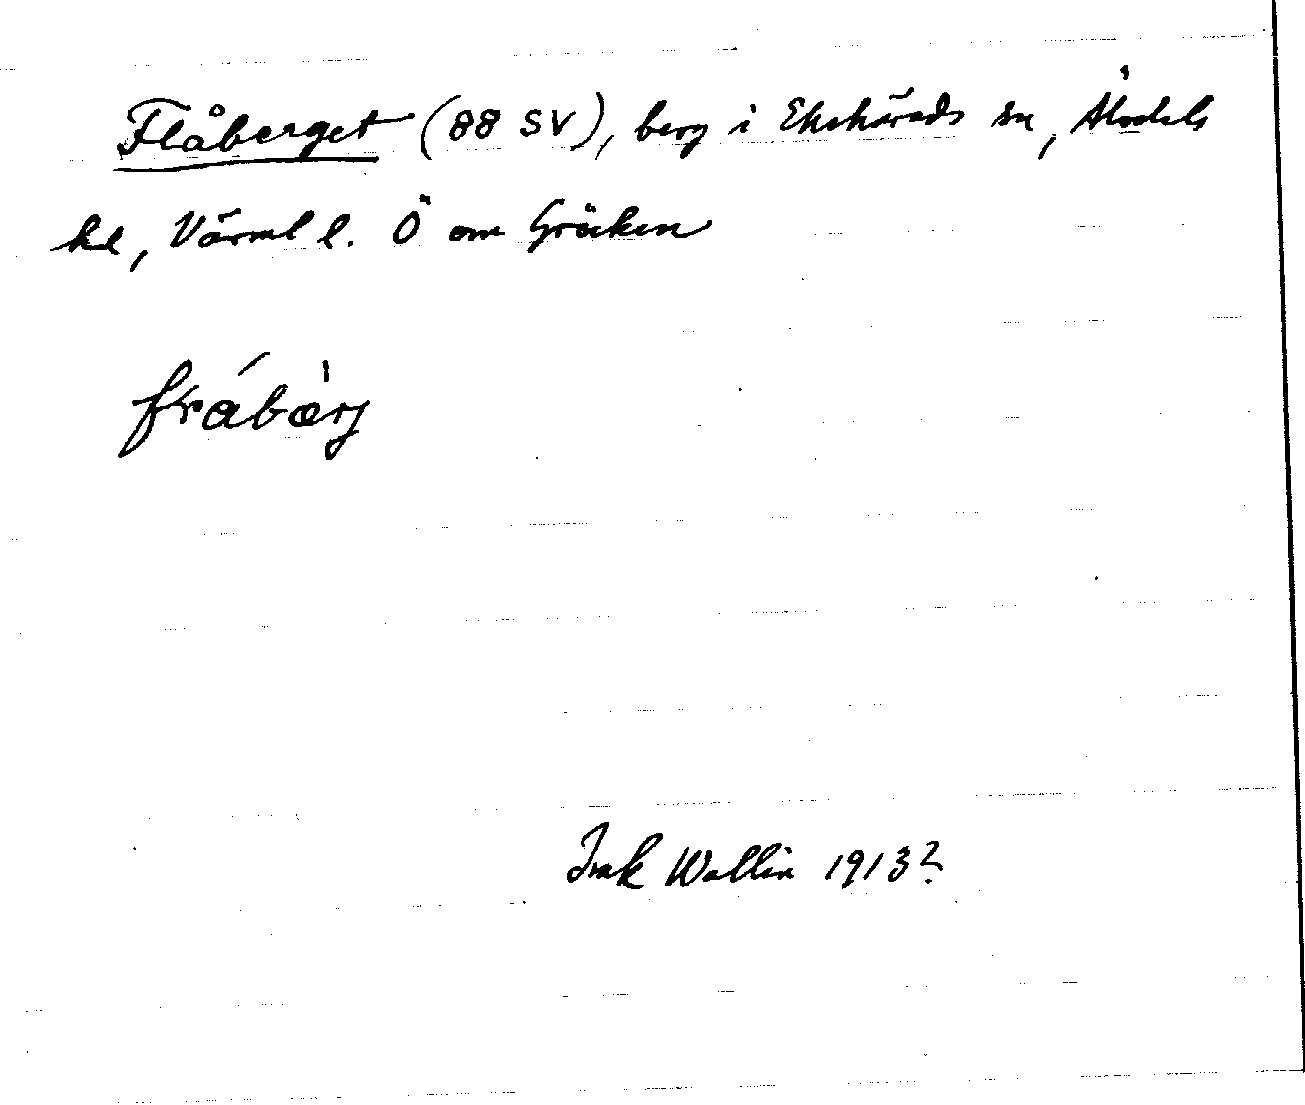 Flåberget (88 SV), berg i Ekshärads sn, Älvdals
hd, Värml l. Ö om Gräcken
frábærj
Isak Wallin 1913?